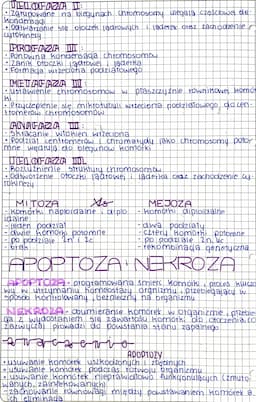 TELOFAZA I
• Zgrupowane na biegunach chromosomy ulegają częściowej de-
kondensacji
• odtwarzanie się otoczek jądrowych i jąderek oraz zachodzenie
cytokinezy
PROFAZA II
• Ponowna kondensacja chromosomów
• Zanik otoczki jądrowej i jąderka
• Formacja wrzeciona podziałowego
METAFAZA II
• ustawienie chromosomów w płaszczyźnie równikowej komór
ki
• Przyczepienie się mikrotubuli wrzeciona podziałowego do cen-
tromerów chromosomów
ANAFAZA II
• Skracanie włókien wrzeciona
• Podział centromerów i chromatydy jako chromosomy poto-
mne wędrują do biegunów komórki
TELOFAZA II
• Rozluźnienie struktury chromosomów
• Odtworzenie otoczki jądrowej i jąderka oraz zachodzenie cy-
tokinezy
MITOZA vs MEJOZA
- komórki haploidalne i diplo
idalne
- jeden podział
- dwie komórki potomne
- po podziale 2n i 2c
- brak
- komórki diploidalne
- dwa podziały
- cztery komórki potomne
- po podziale 1n, 1c
- rekombinacja genetyczna
APOPTOZA I NEKROZA
APOPTOZA - programowana śmierć komórki, proces klucz
wy w utrzymaniu homeostazy organizmu, przebiegający w
sposób kontrolowany, bezpieczny na organizmu
NEKROZA - obumieranie komórek w organizmie, przebie-
ga z wydostaniem się zawartości komórki do otoczenia co
zazwyczaj prowadzi do powstania stanu zapalnego
znaczenie APOPTOZY
• usuwanie komórek uszkodzonych i zbędnych
• usuwanie komórek podczas rozwoju organizmu
• usuwanie komórek nieprawidłowo funkcjonujących (zmuto-
wanych, zainfekowanych)
• zachowanie równowagi między powstawaniem komórek a
ich eliminacją